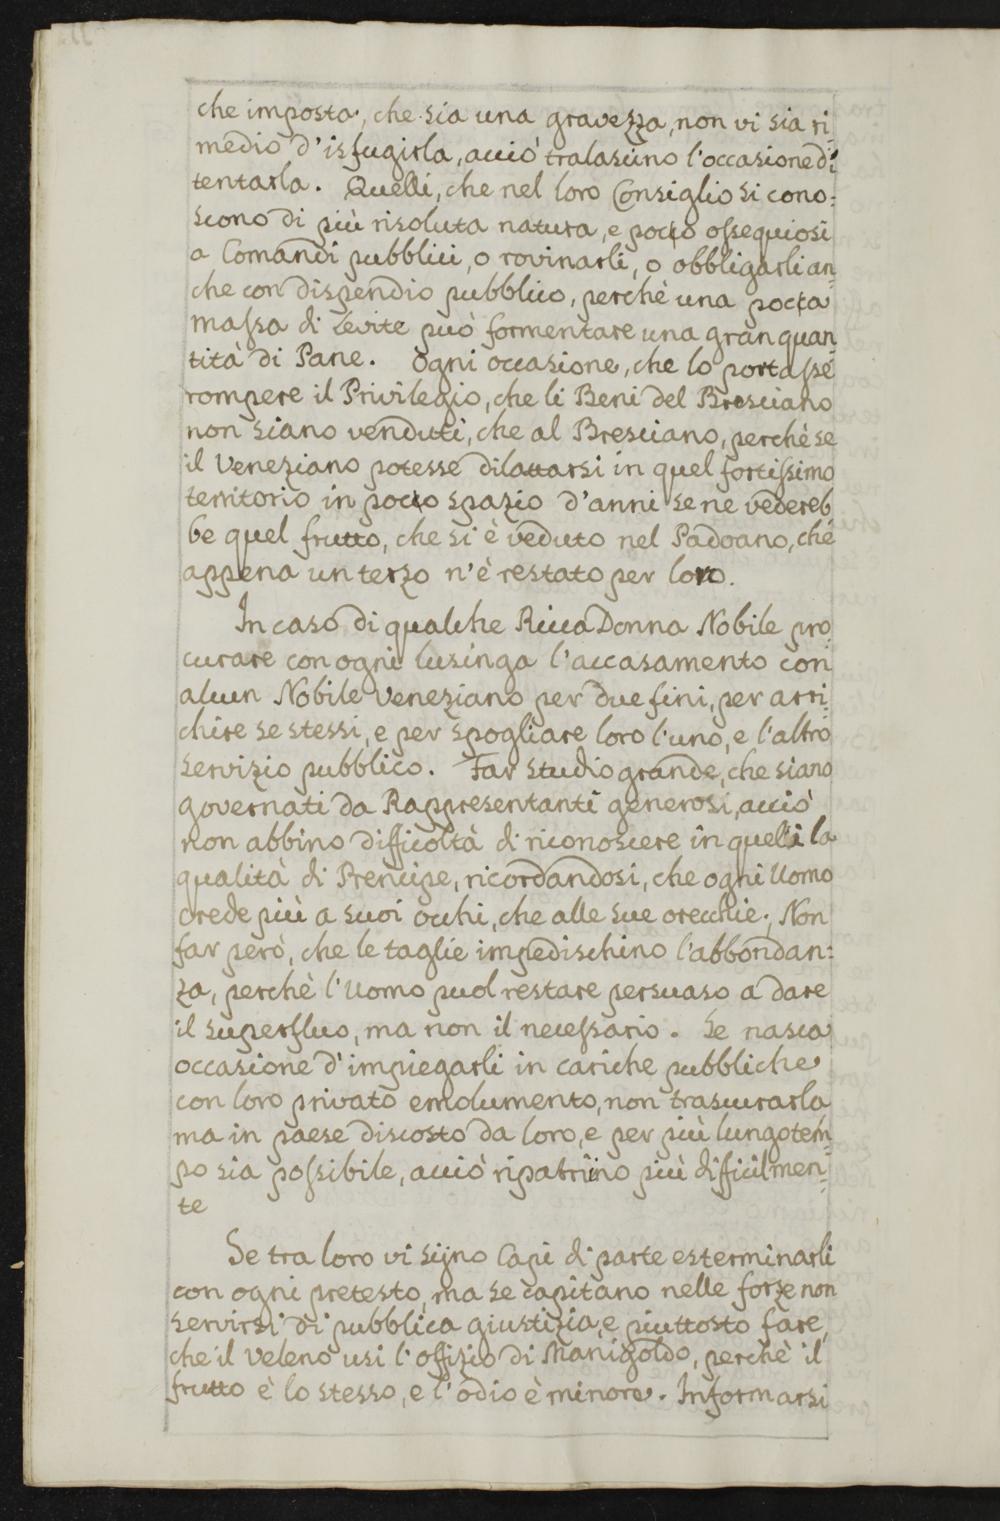 che imposta, che sia una gravezza, non vi sia ri:
medio d'isfugirla, acciò tralascino l'occasione di
tentarla. Quelli, che nel loro Consiglio si cono:
scono di più risoluta natura, e poco ossequiosi
a Comandi pubblici, o rovinarli, o obbligarli an:
che con dispendio pubblico, perchè una poca
massa di Levite può formentare una gran quan:
tità di Pane. Ogni occasione, che lo portasse
rompere il Privilegio, che li Beni del Bresciano
non siano venduti, che al Bresciano, perchè se
il Veneziano potesse dilattarsi in quel fortissimo
territorio in poco spazio d'anni se ne vedereb
be quel frutto, che si è veduto nel Padoano, che
appena un terzo n'è restato per loro.
In caso di qualche Ricca Donna Nobile pro:
curare con ogni lusinga l'accasamento con
alcun Nobile Veneziano per due fini, per arri:
chire se stessi, e per spogliare loro l'uno, e l'altro
servizio pubblico. Far studio grande, che siano
governati da Rappresentanti generosi, acciò
non abbino difficoltà di riconoscere in quelli la
qualità di Prencipe, ricordandosi, che ogni Uomo
crede più a suoi occhi, che alle sue orecchie; Non
far però, che le taglie impedischino l'abbondan:
za, perchè l'Uomo puol restare persuaso a dare
il superfluo, ma non il necessario. Se nasca
occasione d'impiegarli in cariche pubbliche
con loro privato emolumento, non trascurarla
ma in paese discosto da loro, e per più lungo tem:
po sia possibile, acciò ripatriino più dificilmen:
te
Se tra loro vi sijno Capi di parte esterminarli
con ogni pretesto, ma se capitano nelle forze non
servirsi di pubblica giustizia, e piuttosto fare,
che il veleno usi l'offizio di Manigoldo, perchè il
frutto è lo stesso, e l'odio è minore. Informarsi